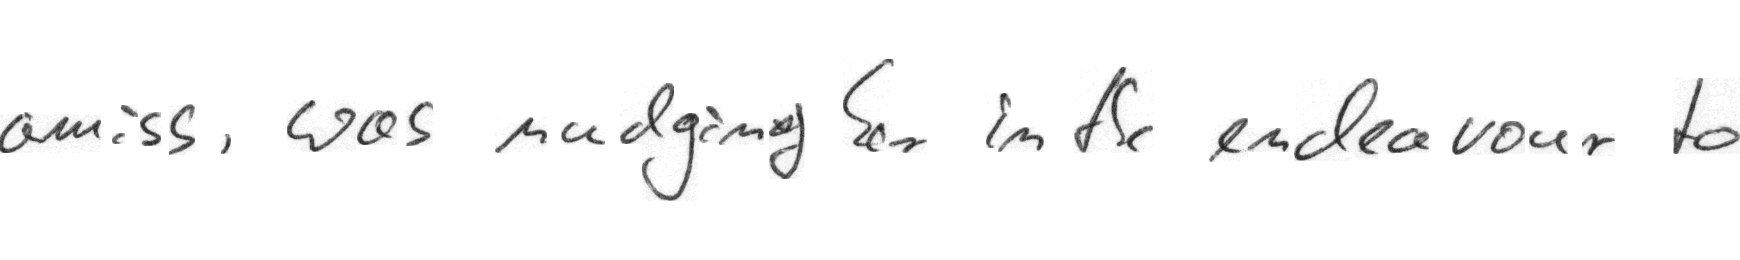 amiss, was nudging her in the endeavour to